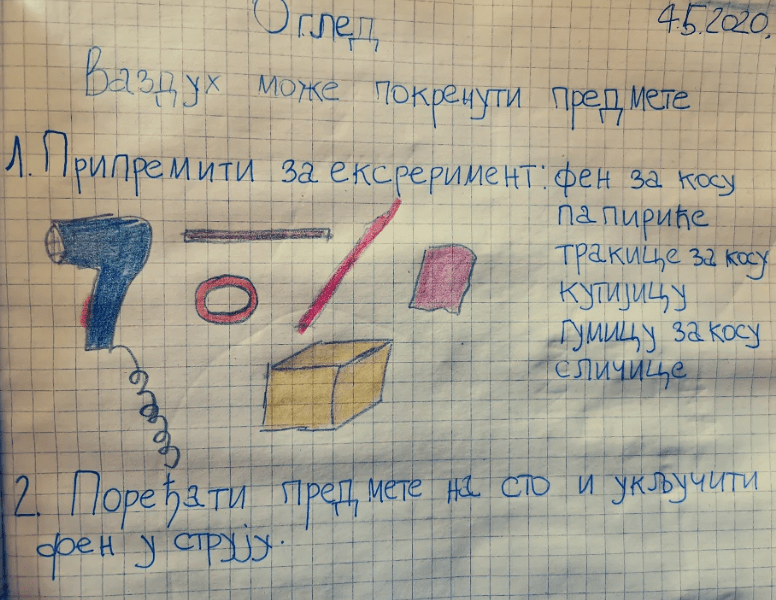 Оглед
4.5.2020.
Ваздух може покренути предмете
1. Припремити за ексреримент: фен за косу
папириће
тракице за косу
кутијицу
гумицу за косу
сличице
2. Поређати предмете на сто и укључити
фен у струју.